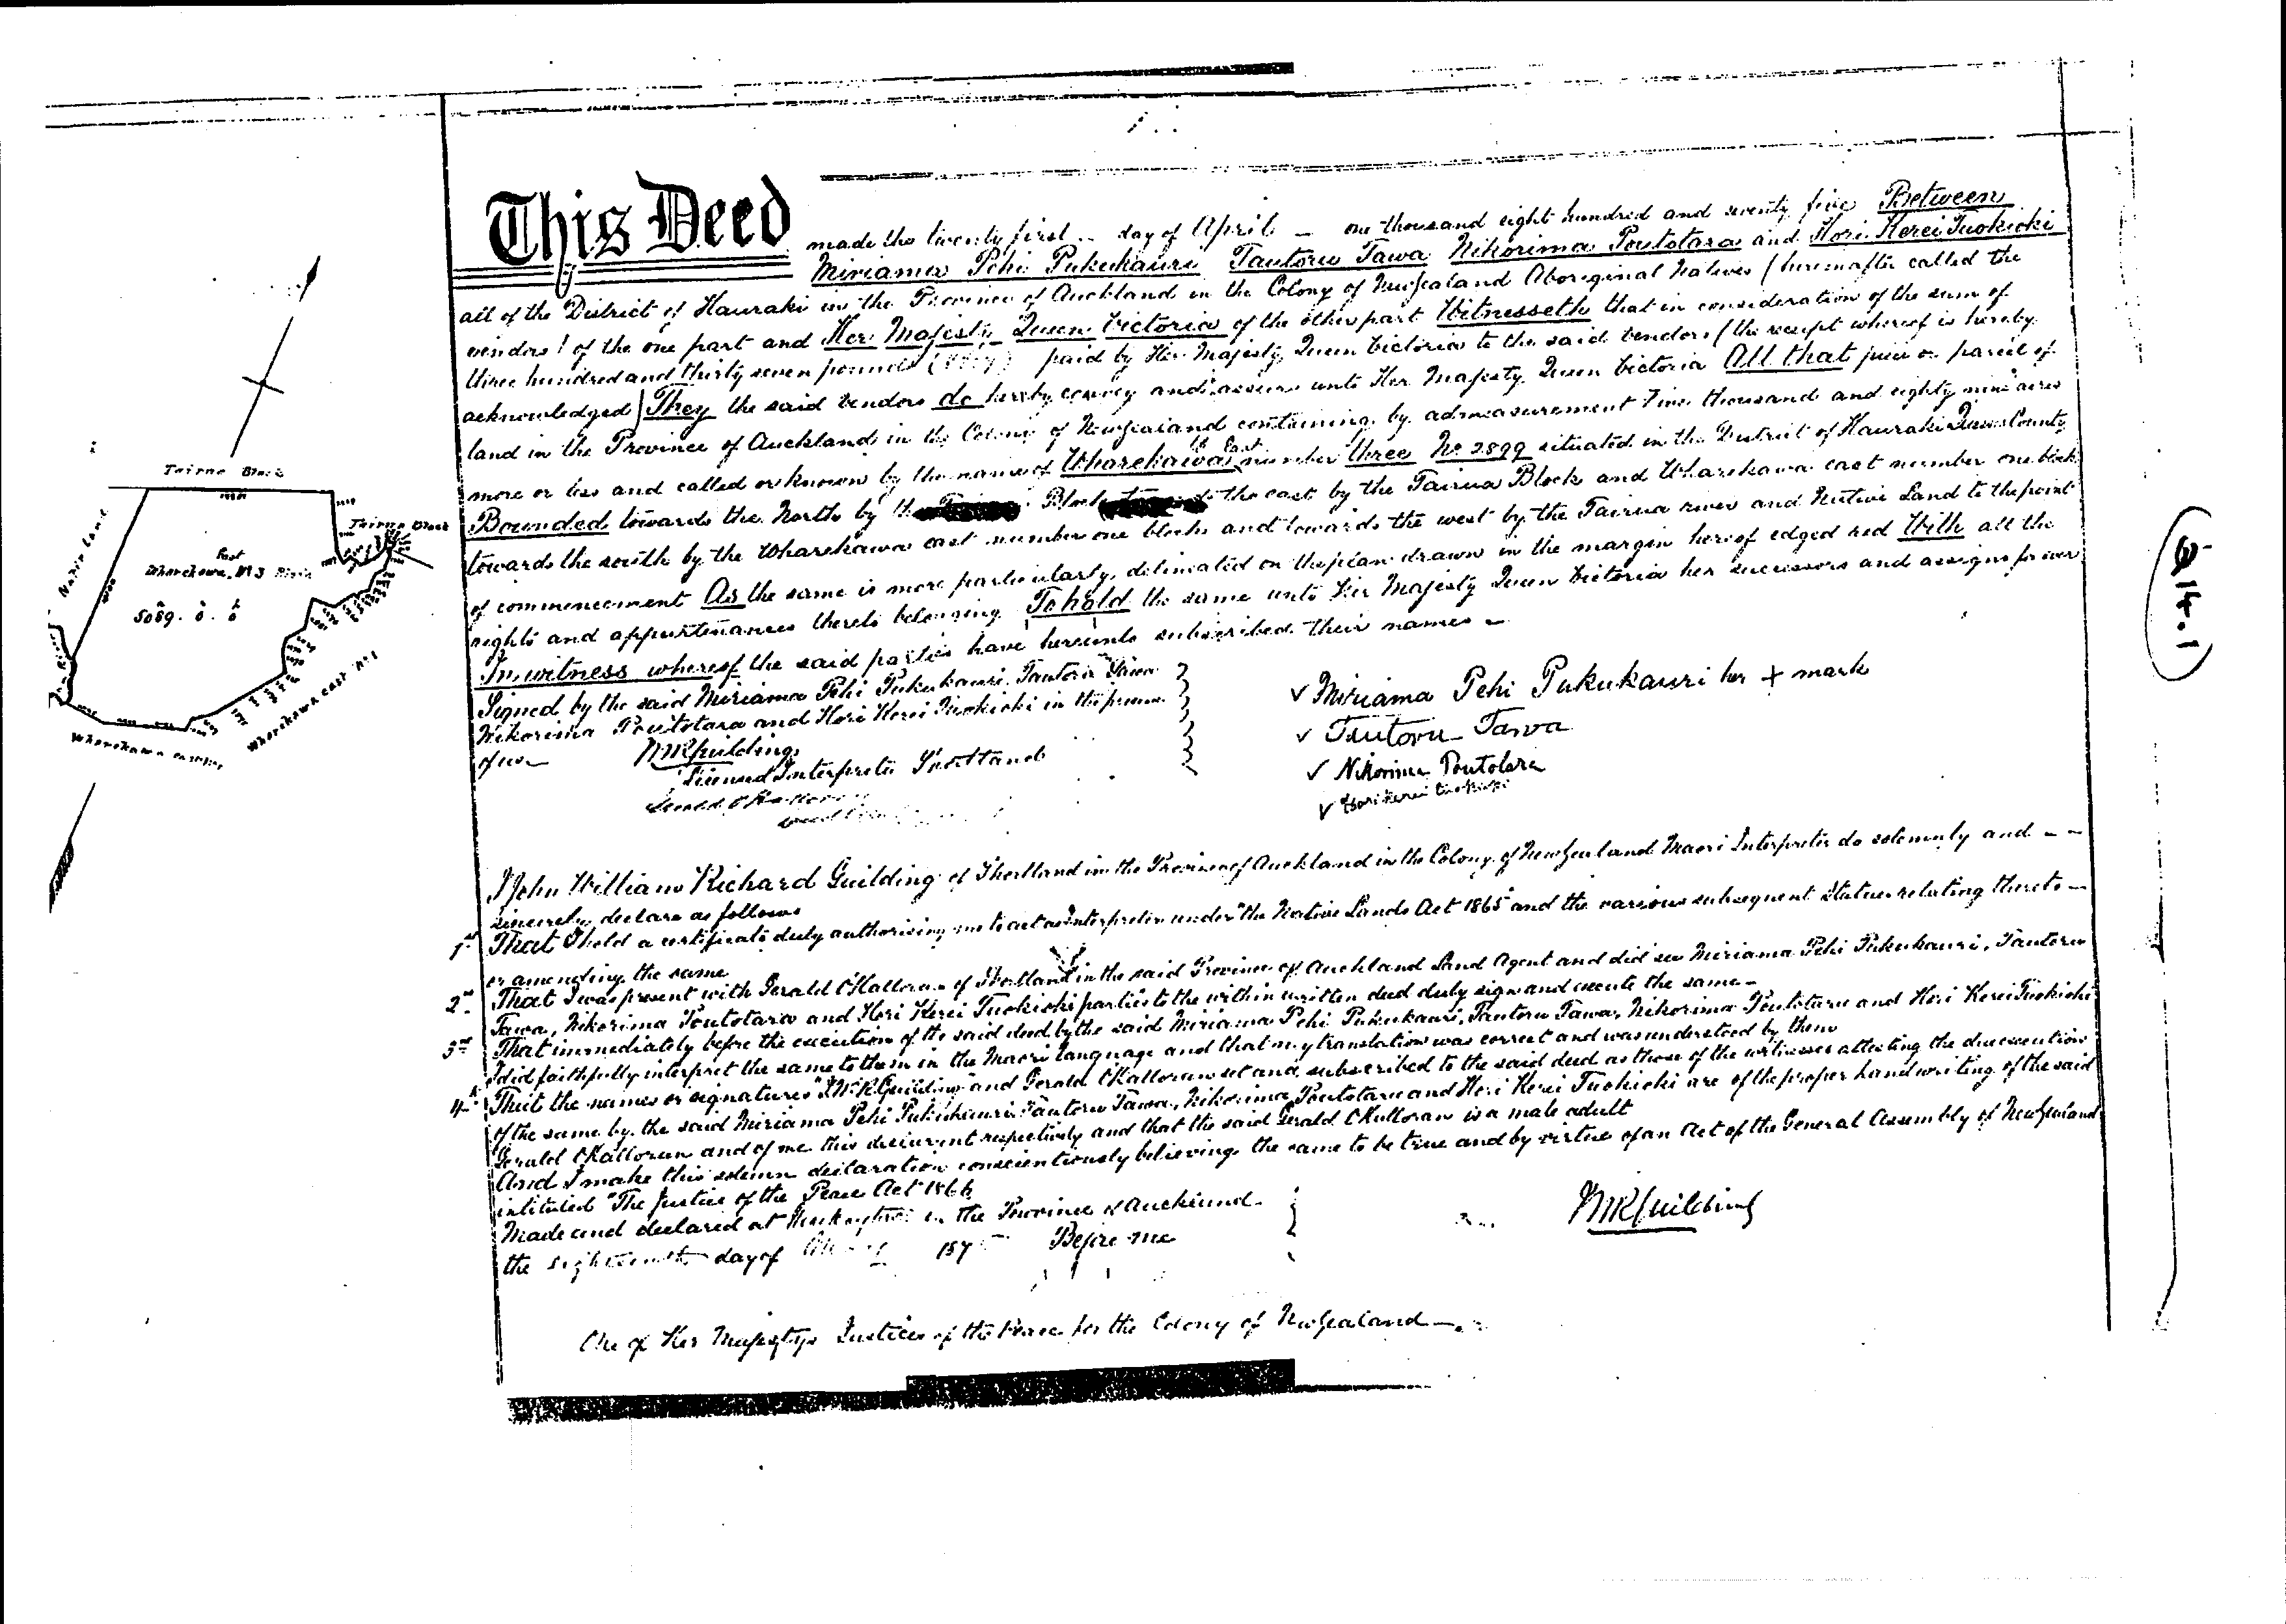 This Deed made the twenty first day of April one thousand eight hundred and seventy five Between
Miriama Pehi Pukukauri Tautoru Tawa Nikorima Poutotara and Hori Kerei Tuokioki
all of the District of Hauraki in the Province of Auckland in the Colony of New Zealand Aboriginal Natives (hereinafter called the
vendors) of the one part and Her Majesty Queen Victoria of the other part Witnesseth that in consideration of the sum of
three hundred and thirty seven pounds paid by Her Majesty Queen Victoria to the said vendors (the receipt whereof is hereby
acknowledged) They the said vendors do hereby convey and assure unto Her Majesty Queen Victoria All that piece or parcel of
land in the Province of Auckland in the Colony of New Zealand containing by admeasurement Five thousand and eighty nine acres
more or less and called or known by the name of Wharekawa East number three No 2899 situated in the District of Hauraki County
Bounded towards the North by the Block the east by the Tairua Block and Wharekawa east number one block
towards the south by the Wharekawa east number one block and towards the west by the Tairua river and Native Land to the point
of commencement As the same is more particularly delineated on the plan drawn in the margin hereof edged red With all the
rights and appurtenances thereto belonging To hold the same unto Her Majesty Queen Victoria her successors and assigns for ever
In witness whereof the said parties have hereunto subscribed their names
Signed by the said Miriama Pehi Pukukauri Tautoru Tawa
Nikorima Poutotara and Hori Kerei Tuokioki in the presence
of us
Guilding
Licensed Interpreter Shortland
Miriama Pehi Pukukauri her + mark
Tautoru Tawa
Nikorima Poutotara
Hori Kerei
I John William Richard Guilding of Shortland in the Province of Auckland in the Colony of New Zealand Maori Interpreter do solemnly and
sincerely declare as follows
1st That I hold a certificate duly authorising me to act as Interpreter under "the Native Lands Act 1865" and the various subsequent Statues relating thereto
or amending the same
2nd That I was present with Gerald O'Halloran of Shortland in the said Province of Auckland Land Agent and did see Miriama Pehi Pukukauri, Tautoru
Tawa, Nikorima Poutotara and Hori Kerei Tuokioki parties to the within written deed duly sign and execute the same
3rd That immediately before the execution of the said deed by the said Miriama Pehi Pukukauri, Tautoru Tawa, Nikorima Poutotara and Hori Kerei Tuokioki
I did faithfully interpret the same to them in the Maori language and that my translation was correct and was understood by them
4th That the names or signatures Guilding" and Gerald O'Halloran set and subscribed to the said deed as those of the witnesses attesting the due execution
of the same by the said Miriama Pehi Pukukauri Tautoru Tawa, Nikorima Poutotara and Hori Kerei Tuokioki are of the proper handwriting of the said
Gerald O'Halloran and of me this declarent respectively and that the said Gerald O'Halloran is a male adult
And I make this solemn declaration conscientiously believing the same to be true and by virtue of an Act of the General Assembly of New Zealand
intituled "The Justice of the Peace Act 1866
Made and declared at in the Province of Auckland
the eighteenth day of 187 Before me
Guilding
One of Her Majestys Justices of the Peace for the Colony of New Zealand
Tairua Block
Tairua Block
Native Land
East
Wharekawa No 3 Block
5089. 0. 0
Wharekawa East No 1